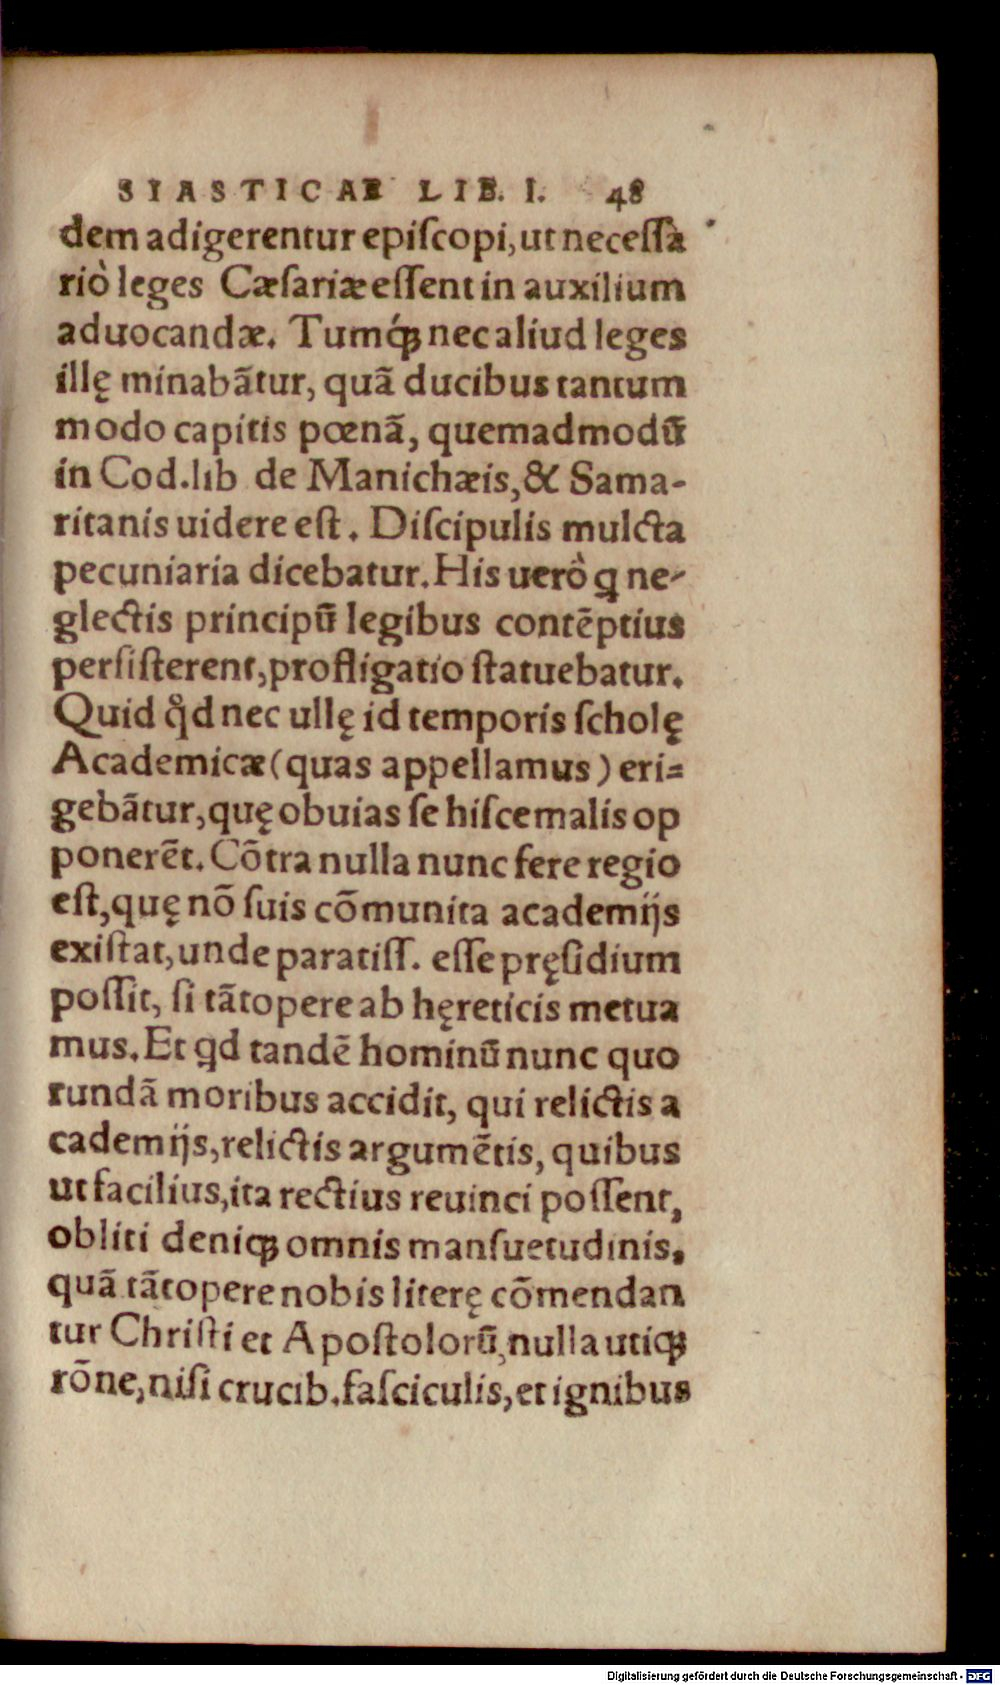 SIASTICAE LIB. I. 48
dem adigerentur epiſcopi, ut neceſſa
riò leges Cæſariæ eſſent in auxilium
aduocandæ. Tumq́ꝫ nec aliud leges
illę minabãtur, quã ducibus tantum
modo capitis pœnã, quemadmodũ
in Cod. lib de Manichæis, & Sama-
ritanis uidere eſt. Diſcipulis mulcta
pecuniaria dicebatur. His uerò ꝗ ne-
glectis principũ legibus contẽptius
perſiſterent, profligatio ſtatuebatur.
Quid qͦd nec ullę id temporis ſcholę
Academicæ (quas appellamus) eri=
gebãtur, quę obuias ſe hiſce malis op
ponerẽt. Cõtra nulla nunc fere regio
eſt, quę nõ ſuis cõmunita academijs
exiſtat, unde paratiſſ. eſſe pręſidium
poſſit, ſi tãtopere ab hęreticis metua
mus. Et ꝗd tandẽ hominũ nunc quo
rundã moribus accidit, qui relictis a
cademijs, relictis argumẽtis, quibus
ut facilius, ita rectius reuinci poſſent,
obliti deniqꝫ omnis manſuetudinis,
quã tãtopere nobis literę cõmendan
tur Chriſti et Apoſtolorũ, nulla utiqꝫ
rõne, niſi crucib. faſciculis, et ignibus
Digitalisierung gefördert durch die Deutsche Forschungsgemeinschaft - DFG